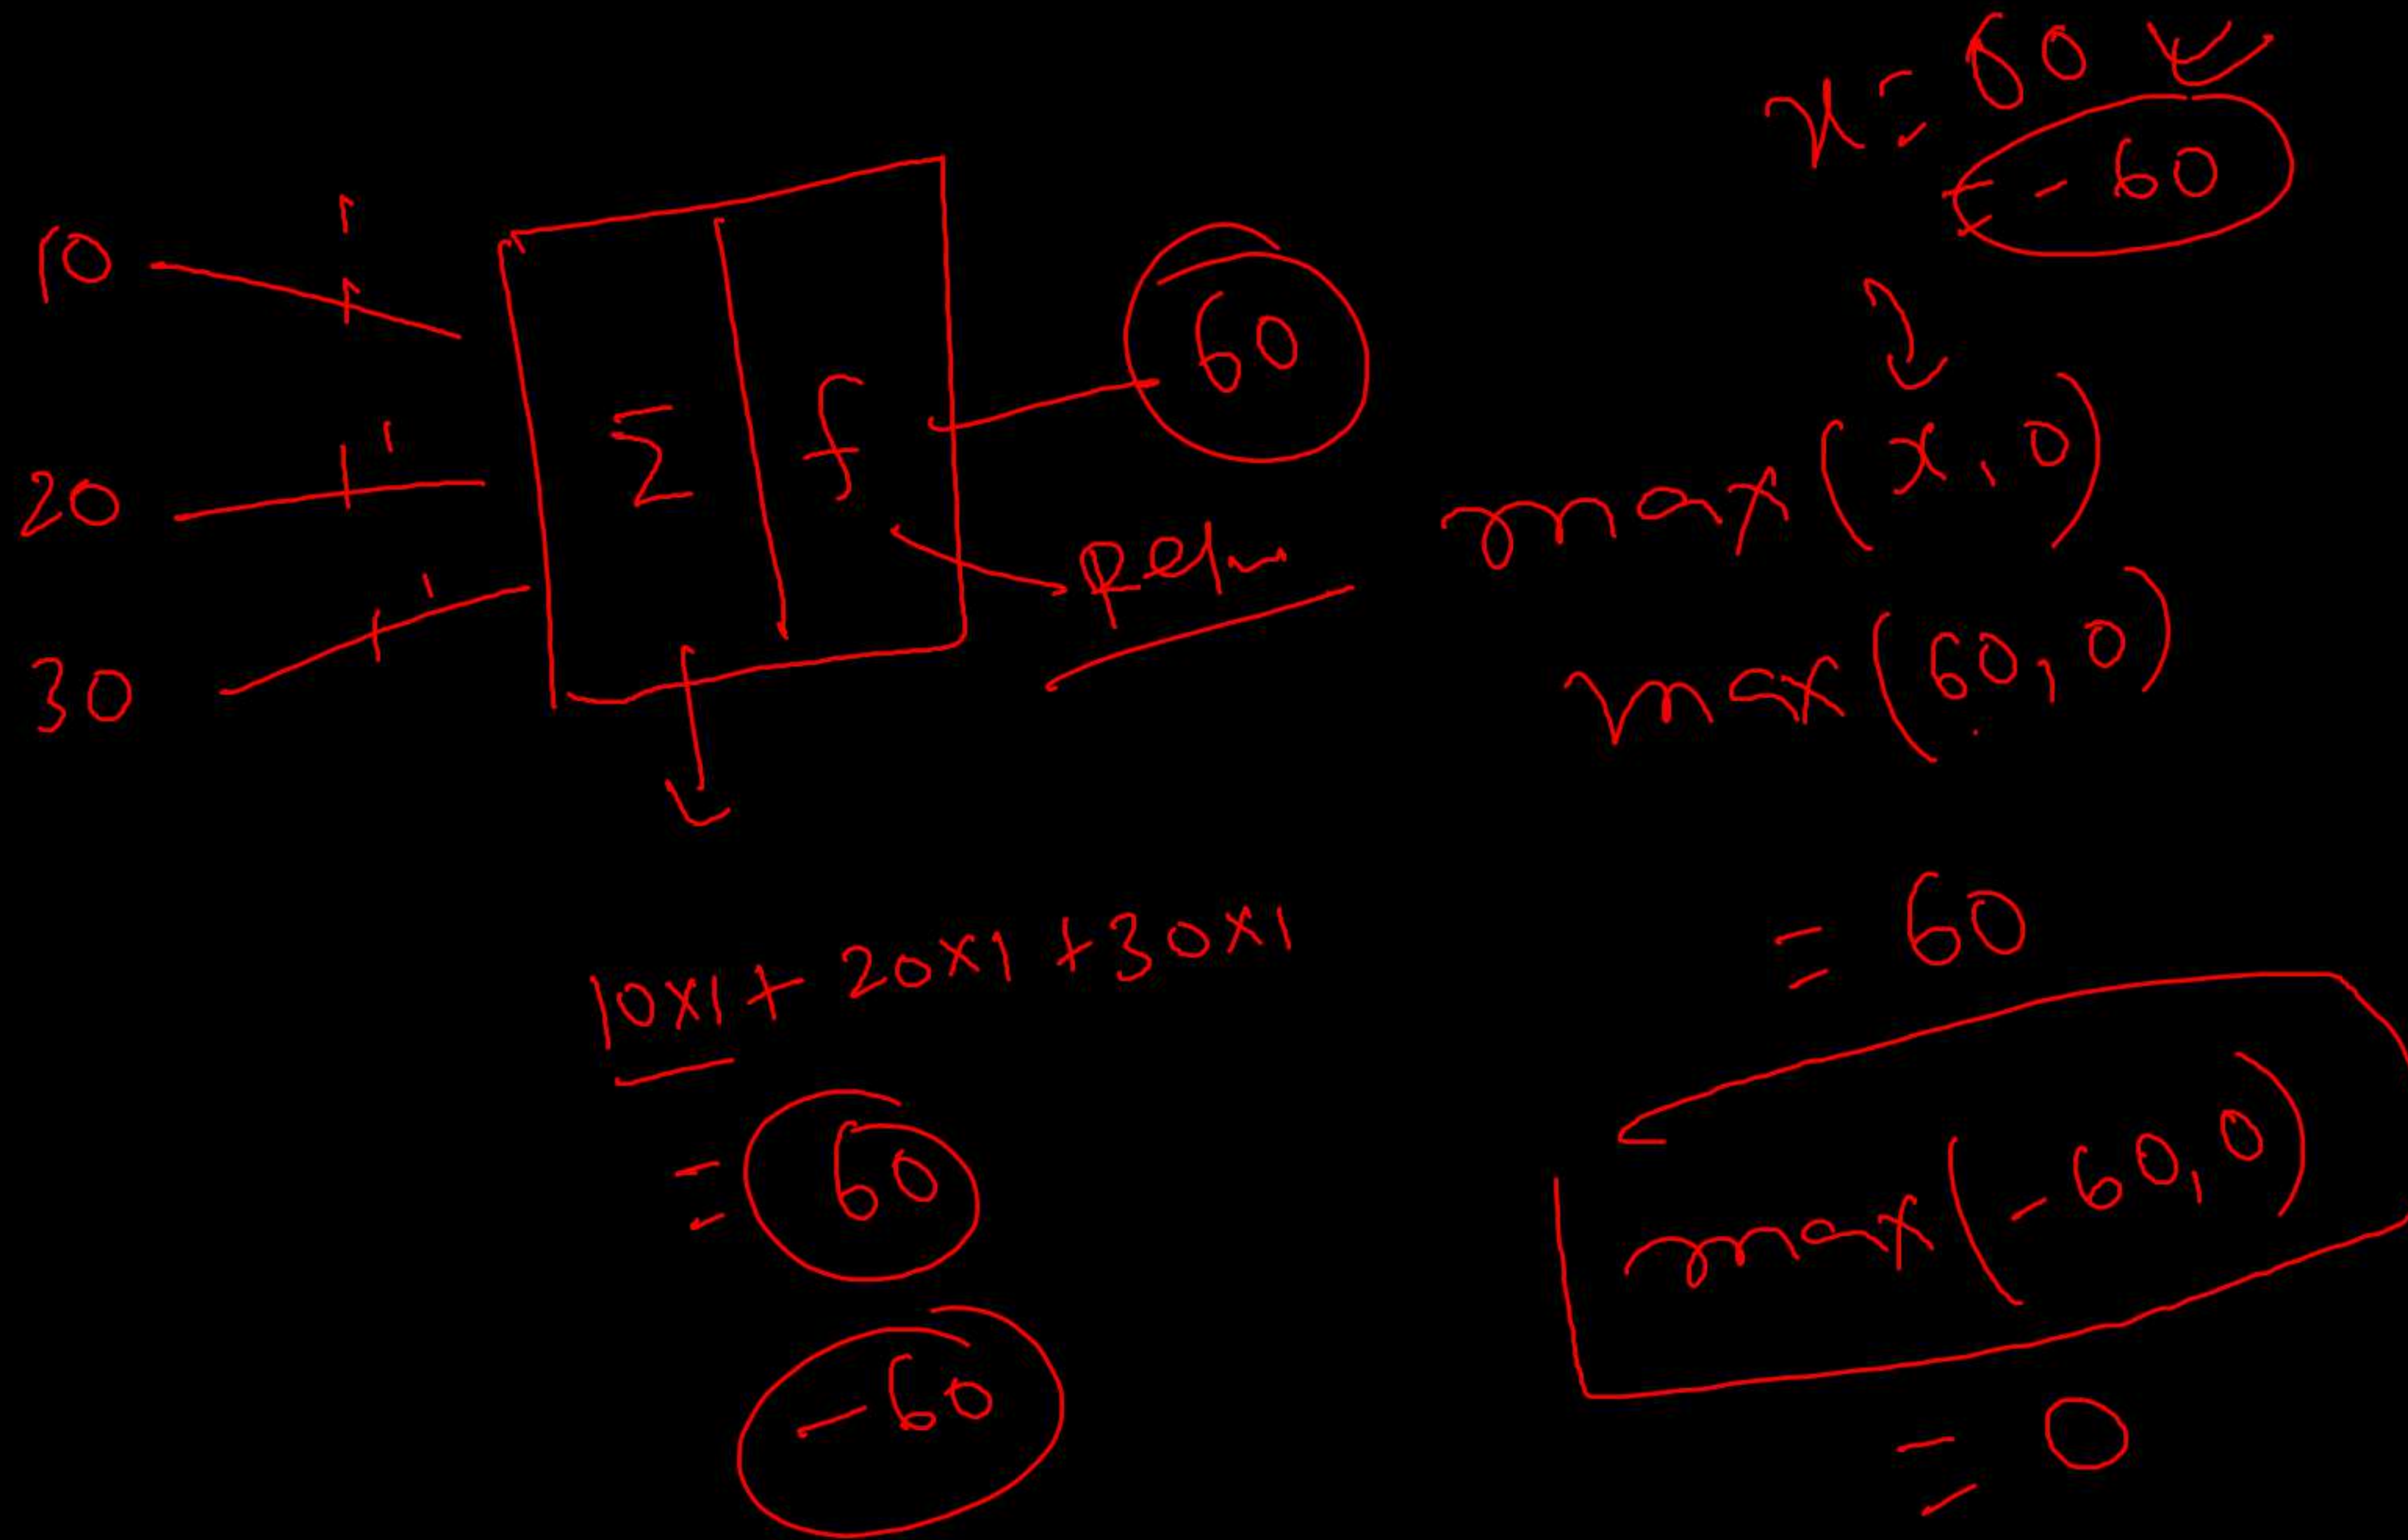 10 1
20 1
30 1
Σ f
60
Relu
10x1 + 20x1 + 30x1
= 60
-60
x = 60
= -60
max(x, 0)
max(60, 0)
= 60
max(-60, 0)
= 0